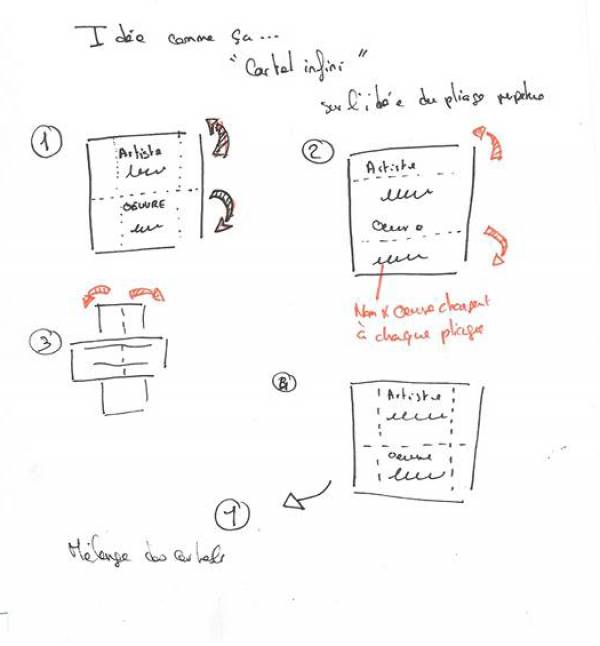 Idée comme ça...
"Cartel infini"
sur l'idée du pliage perpétuel
1
Artiste
OEUVRE
2
Artiste
Oeuvre
Nom & Oeuvre changent
à chaque pliage
3
4
Artiste
Oeuvre
1'
Mélange des cartels